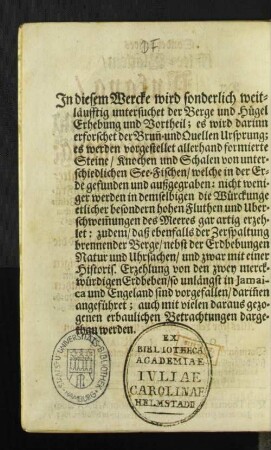 DF
In diesem Wercke wird sonderlich weit-
läufftig untersuchet der Berge und Hügel
Erhebung und Vortheil; es wird darinn
erforschet der Brun- und Quellen Ursprung;
es werden vorgestellet allerhand formierte
Steine/ Knochen und Schalen von unter-
schiedlichen See-Fischen/ welche in der Er-
de gefunden und außgegraben: nicht weni-
ger werden in demselbigen die Würckunge
etlicher besondern hohen Fluthen und Uber-
schwemungen des Meeres gar artig erzeh-
let: zudem/ daß ebenfalls der Zerspaltung
brennender Berge/ nebst der Erdbebungen
Natur und Uhrsachen/ und zwar mit einer
Historis. Erzehlung von den zwey merck-
würdigen Erdbeben/ so unlängst in Jamai-
ca und Engeland sind vorgefallen/ dariñen
angeführet: auch mit vielen daraus gezo-
genen erbaulichen Betrachtungen darge-
than werden.
EX
BIBLIOTHECA
ACADEMIAE
IVLIAE
CAROLINAE
HELMSTADII
STAATS-U UNIVERSITÄTS-BIBLIOTHEK
HAMBURG